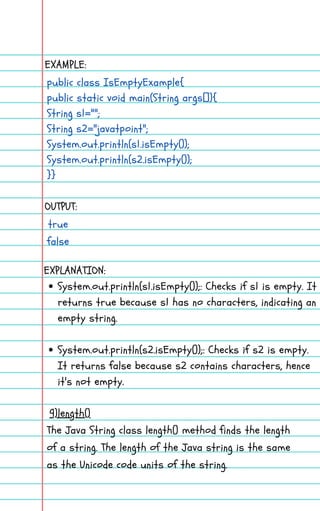 EXAMPLE:
public class IsEmptyExample{
public static void main(String args[]){
String s1="";
String s2="javatpoint";
System.out.println(s1.isEmpty());
System.out.println(s2.isEmpty());
}}
OUTPUT:
true
false
EXPLANATION:
• System.out.println(s1.isEmpty());: Checks if s1 is empty. It
returns true because s1 has no characters, indicating an
empty string.
• System.out.println(s2.isEmpty());: Checks if s2 is empty.
It returns false because s2 contains characters, hence
it's not empty.
9)length()
The Java String class length() method finds the length
of a string. The length of the Java string is the same
as the Unicode code units of the string.